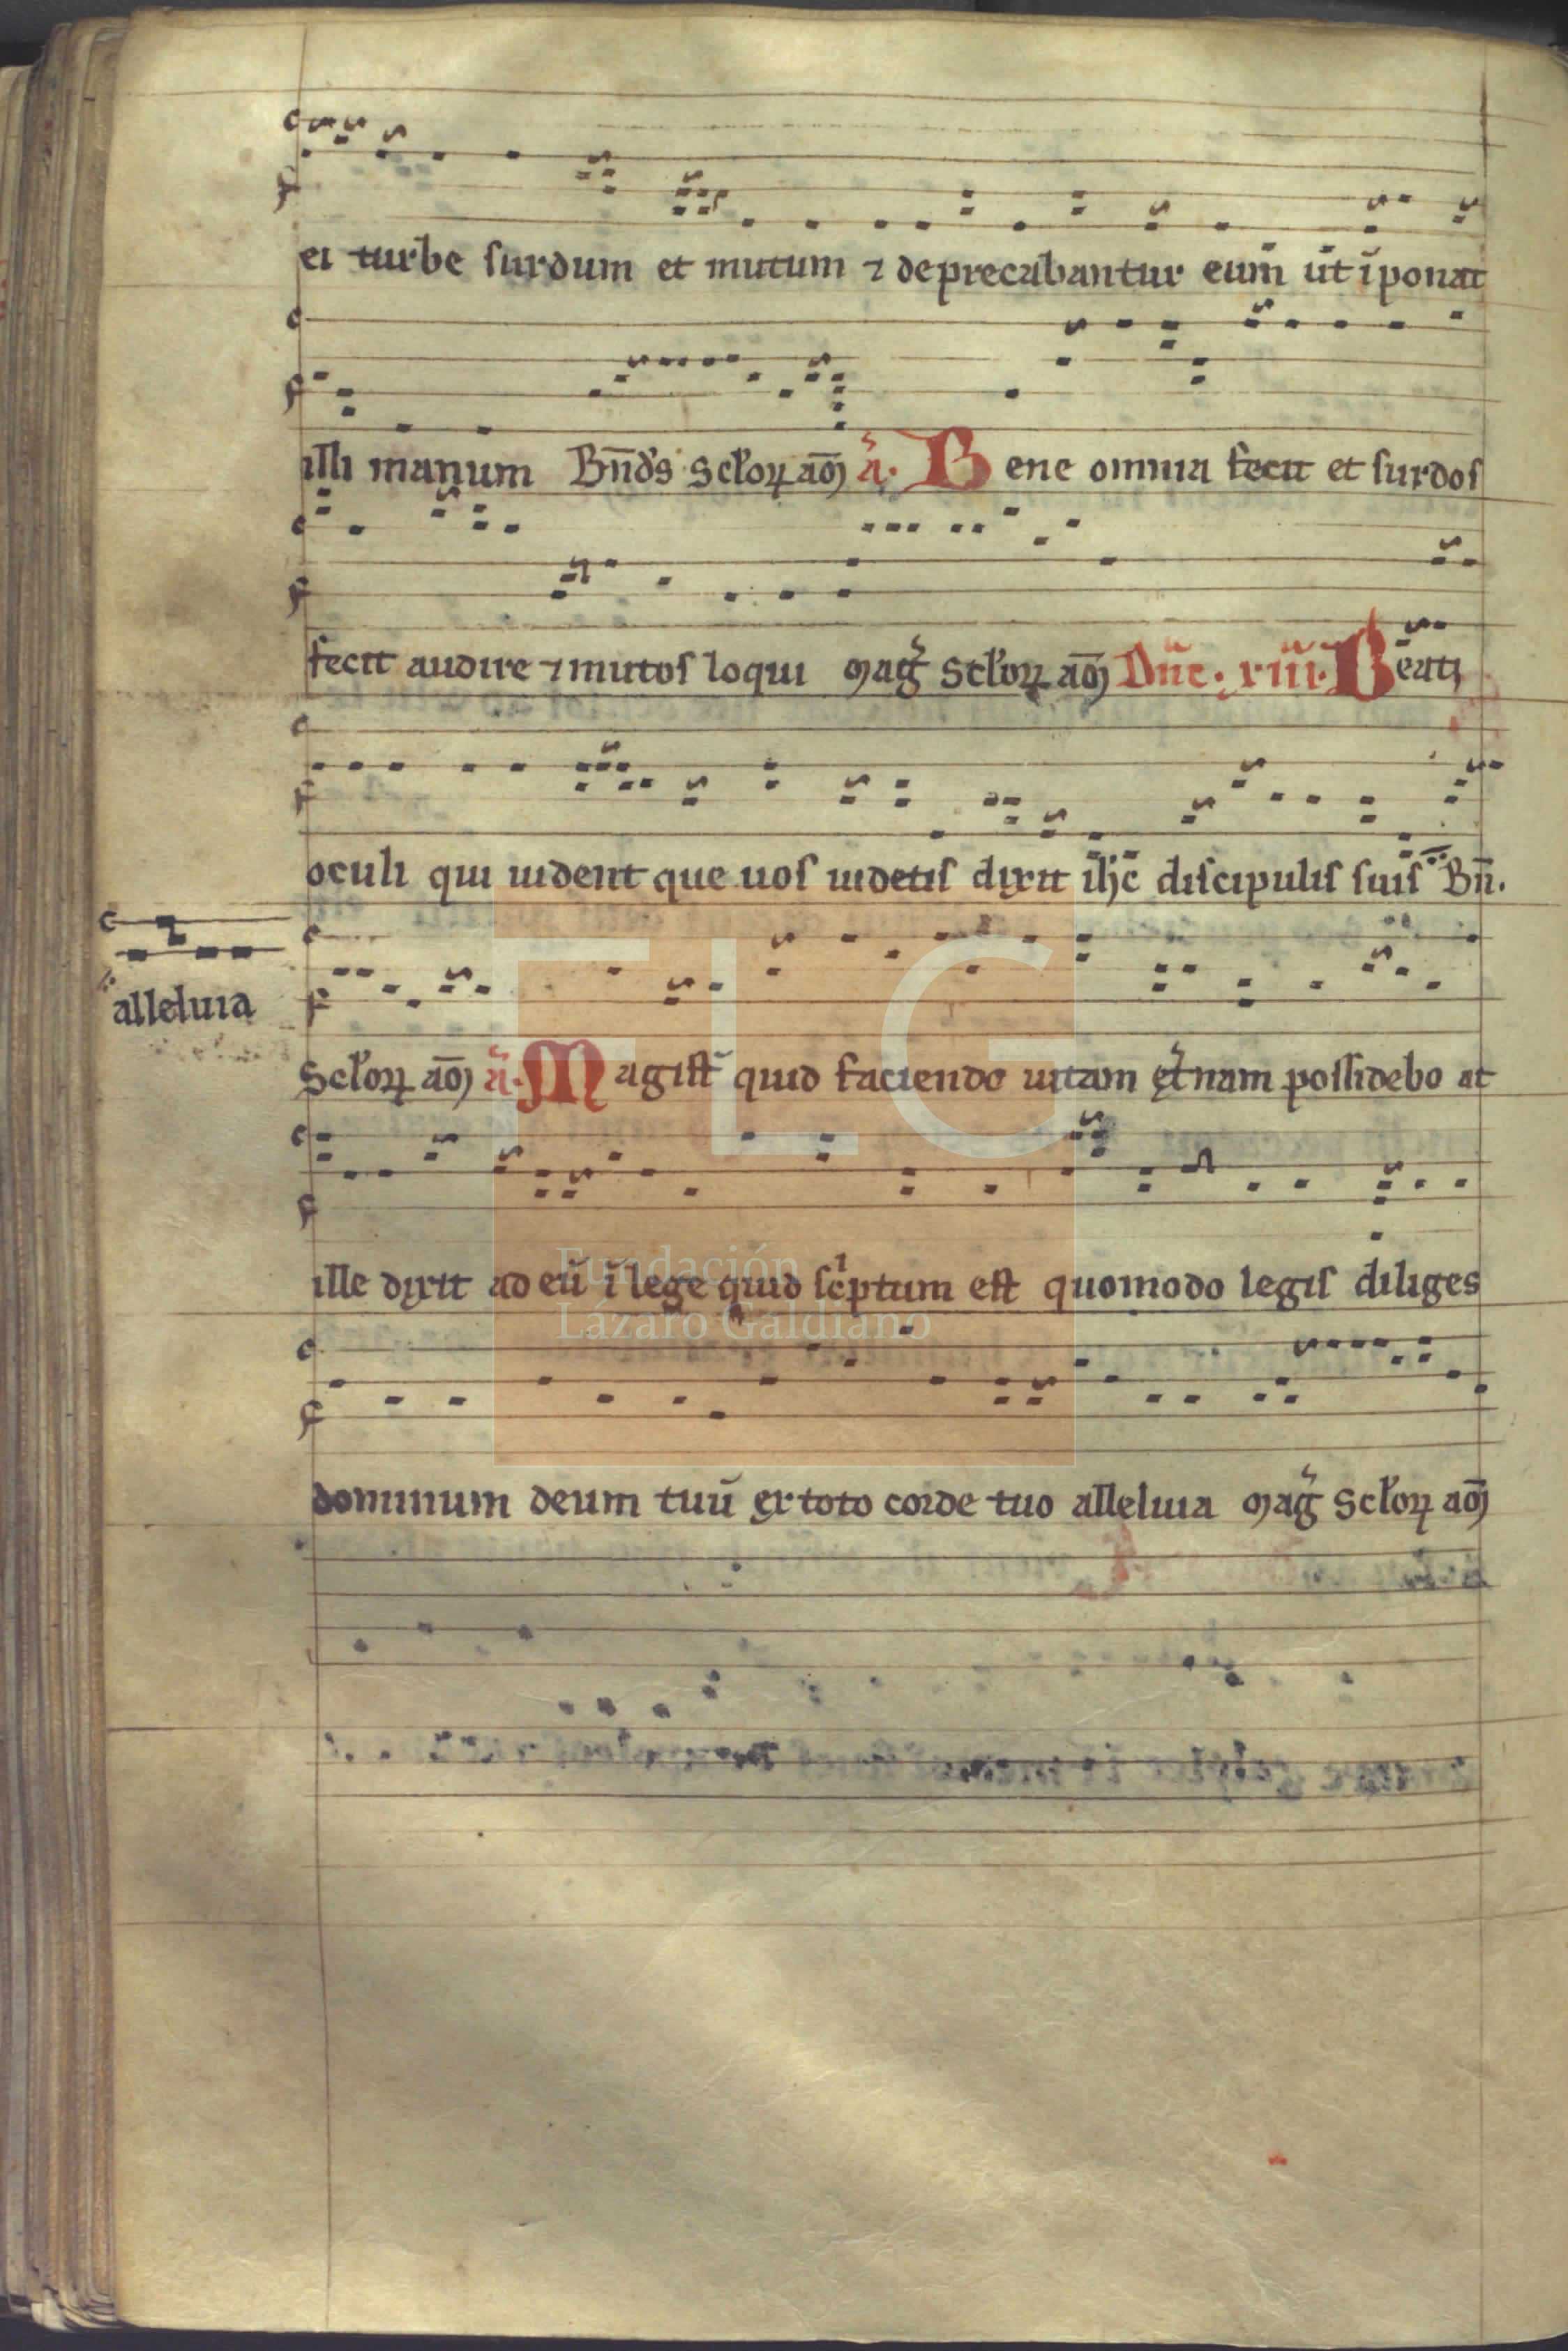 ei turbe surdum et mutum ⁊ deprecabantur eum̄ ut īponat
illi manum Bn̄ds sclor̄ꝝ am̄ ā. Bene omnia fecit et surdos
fecit audire ⁊ mutos loqui mag̃ sclor̄ꝝ am̄ Dn̄c. xiii. Beati
oculi qui uident que uos uidetis dixit ih̄c discipulis suis Bn̄.
alleluia
sclor̄ꝝ am̄ ā. Magist̃ quid faciendo uitam et̃nam possidebo at
ille dixit ad eū ī lege quid scⁱptum est quomodo legis diliges
dominum deum tuū ex toto corde tuo alleluia mag̃ sclor̄ꝝ am̄
FLG
Fundación
Lázaro Galdiano